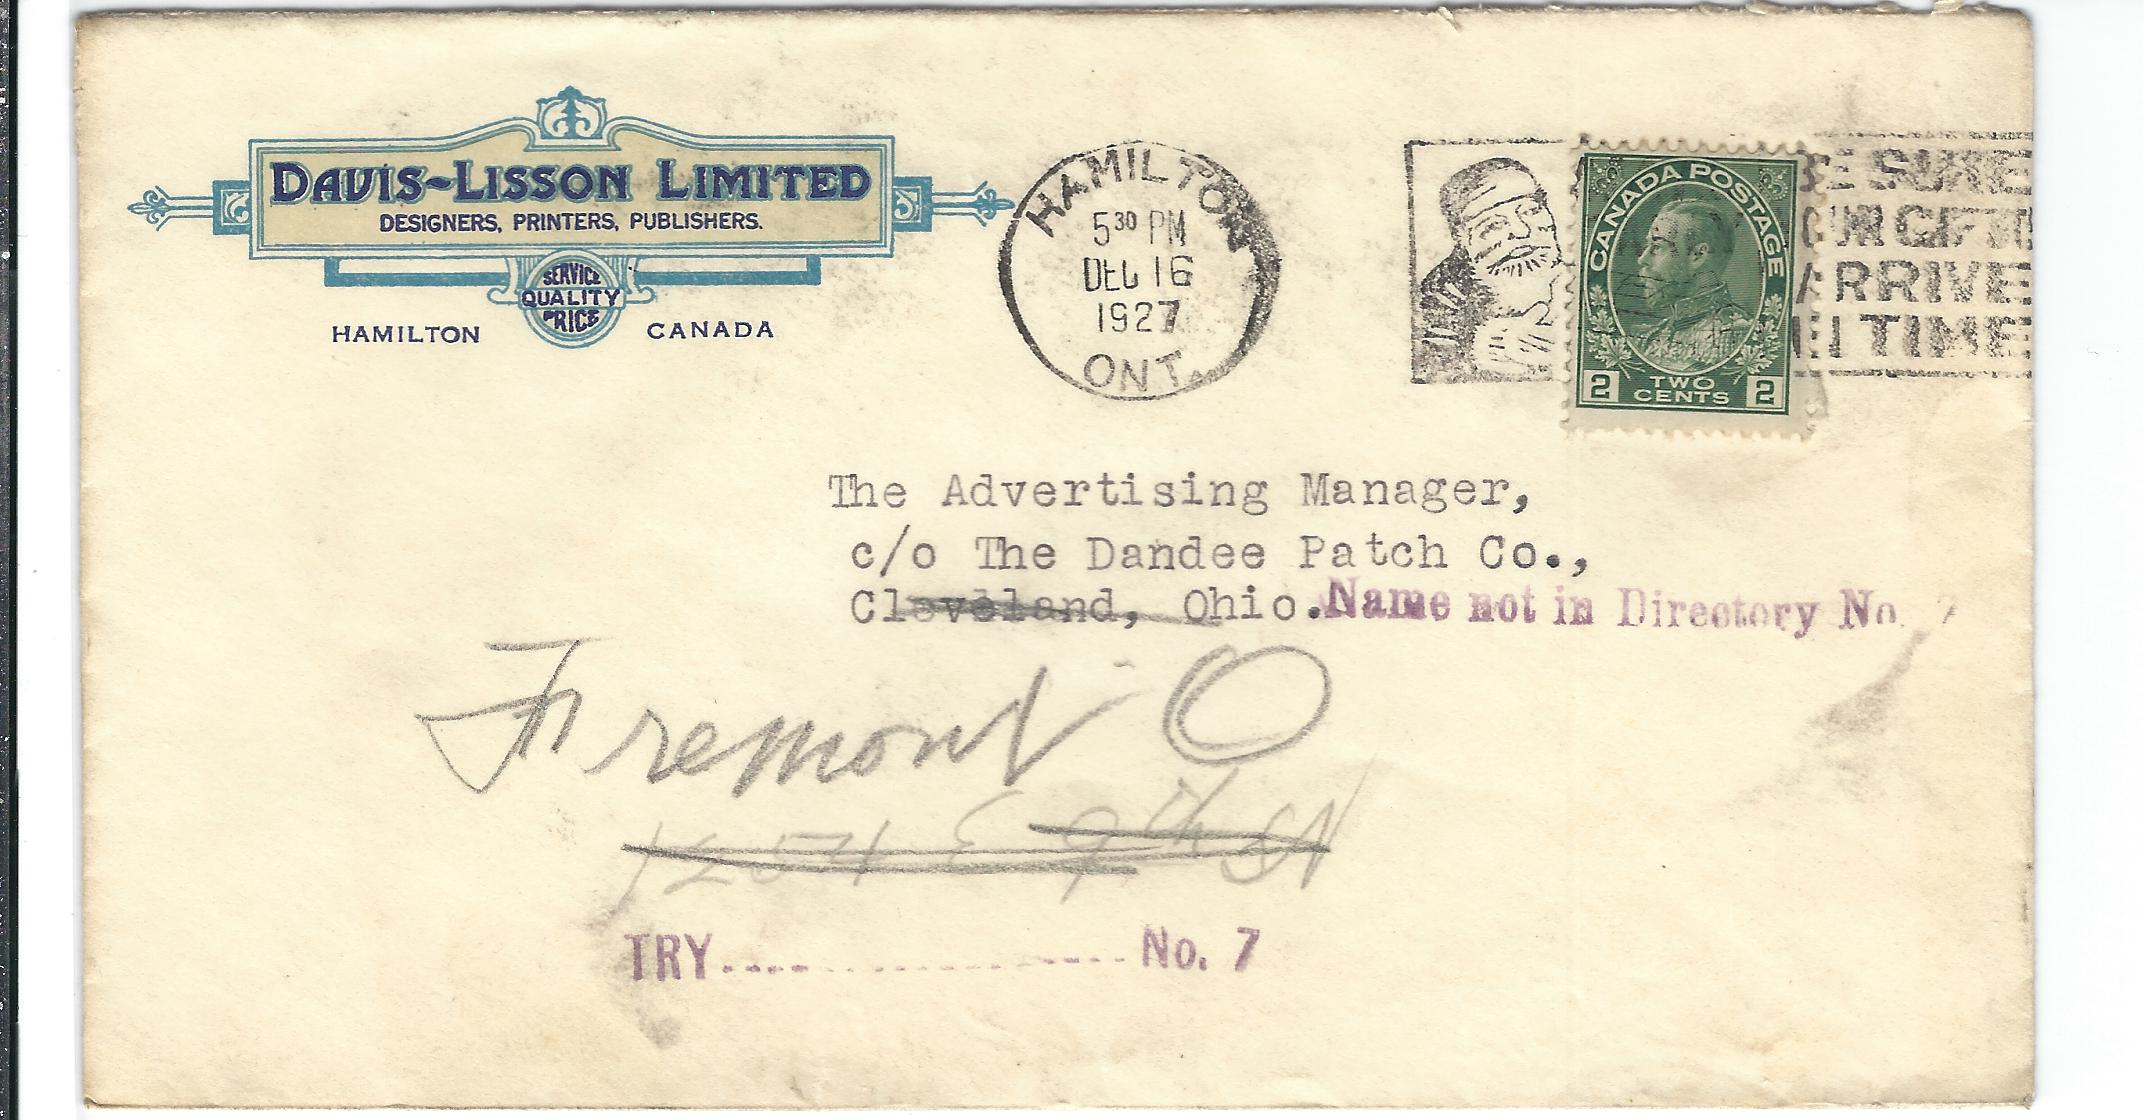 DAVIS-LISSON LIMITED
DESIGNERS, PRINTERS, PUBLISHERS.
SERVICE
QUALITY
PRICE
HAMILTON CANADA
HAMILTON
5 30 PM
DEC 16
1927
ONT.
BE SURE
OUR GIFTS
ARRIVE
IN TIME
CANADA POSTAGE
2 TWO CENTS 2
The Advertising Manager,
c/o The Dandee Patch Co.,
Cleveland, Ohio.
Name not in Directory No. 7
Fremont O
1254 E 9th St
TRY.................... No. 7